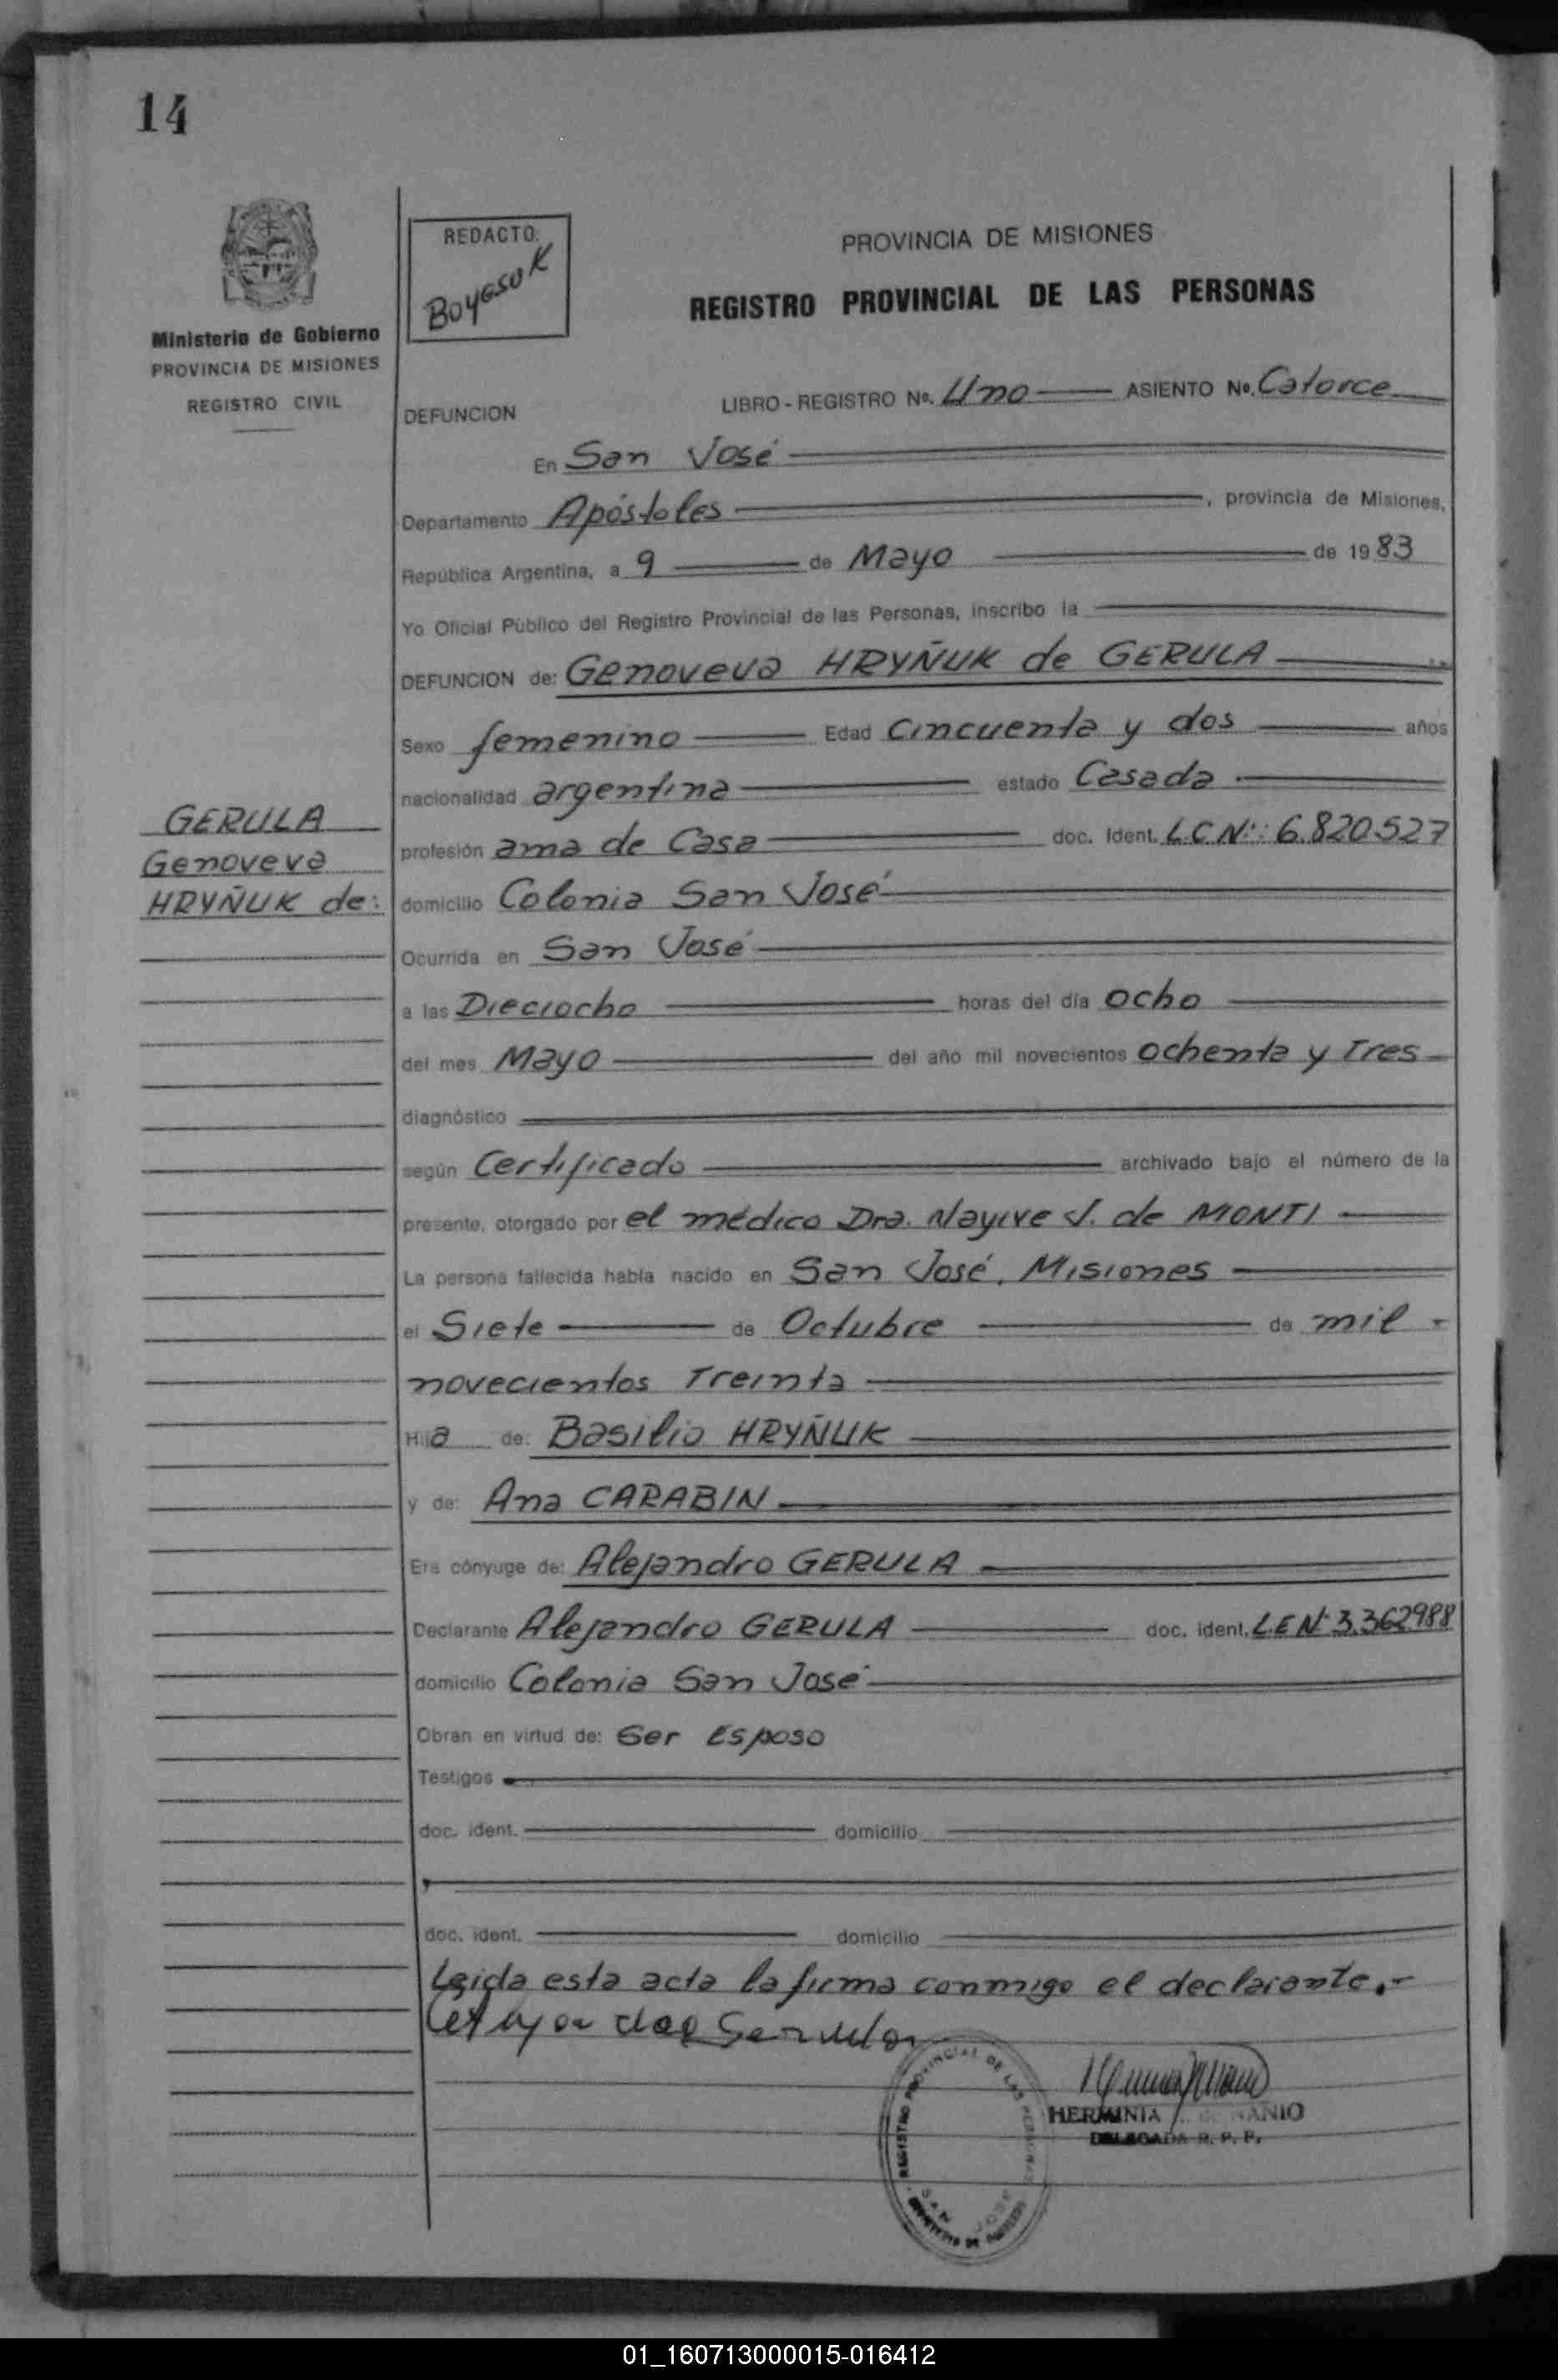 14
Ministerio de Gobierno
PROVINCIA DE MISIONES
REGISTRO CIVIL
REDACTO:
BoyesuK
PROVINCIA DE MISIONES
REGISTRO PROVINCIAL DE LAS PERSONAS
DEFUNCION
LIBRO - REGISTRO No. Uno ASIENTO No. Catorce
En San José
Departamento Apóstoles, provincia de Misiones,
República Argentina, a 9 de Mayo de 1983
Yo Oficial Público del Registro Provincial de las Personas, inscribo la
DEFUNCION de: Genoveva HRYÑUK de GERULA
Sexo femenino Edad Cincuenta y dos años
nacionalidad argentina estado Casada
GERULA
Genoveva
HRYÑUK de:
profesión ama de Casa doc. Ident. L.C.Nº: 6.820.527
domicilio Colonia San José
Ocurrida en San José
a las Dieciocho horas del día ocho
del mes Mayo del año mil novecientos ochenta y Tres
diagnóstico
según Certificado archivado bajo el número de la
presente, otorgado por el médico Dra. Nayive J. de MONTI
La persona fallecida había nacido en San José, Misiones
el Siete de Octubre de mil
novecientos Treinta
Hija de: Basilio HRYÑUK
y de: Ana CARABIN
Era cónyuge de: Alejandro GERULA
Declarante Alejandro GERULA doc. ident. L.E Nº 3.362988
domicilio Colonia San José
Obran en virtud de: Ser Esposo
Testigos
doc. ident. domicilio
doc. ident. domicilio
Leida esta acta la firma conmigo el declarante.-
REGISTRO PROVINCIAL DE LAS PERSONAS
SAN JOSE
HERMINIA NANIO
DELEGADA R. P. P.
01_160713000015-016412